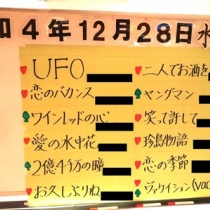 4年12月28日
UFO
恋のバカンス
ワインレッドの心
愛の水中花
2億4千万の瞳
お久しぶりね
二人でお酒を
ヤングマン
笑って許して
珍島物語
恋の季節
ヴァケイション(vac